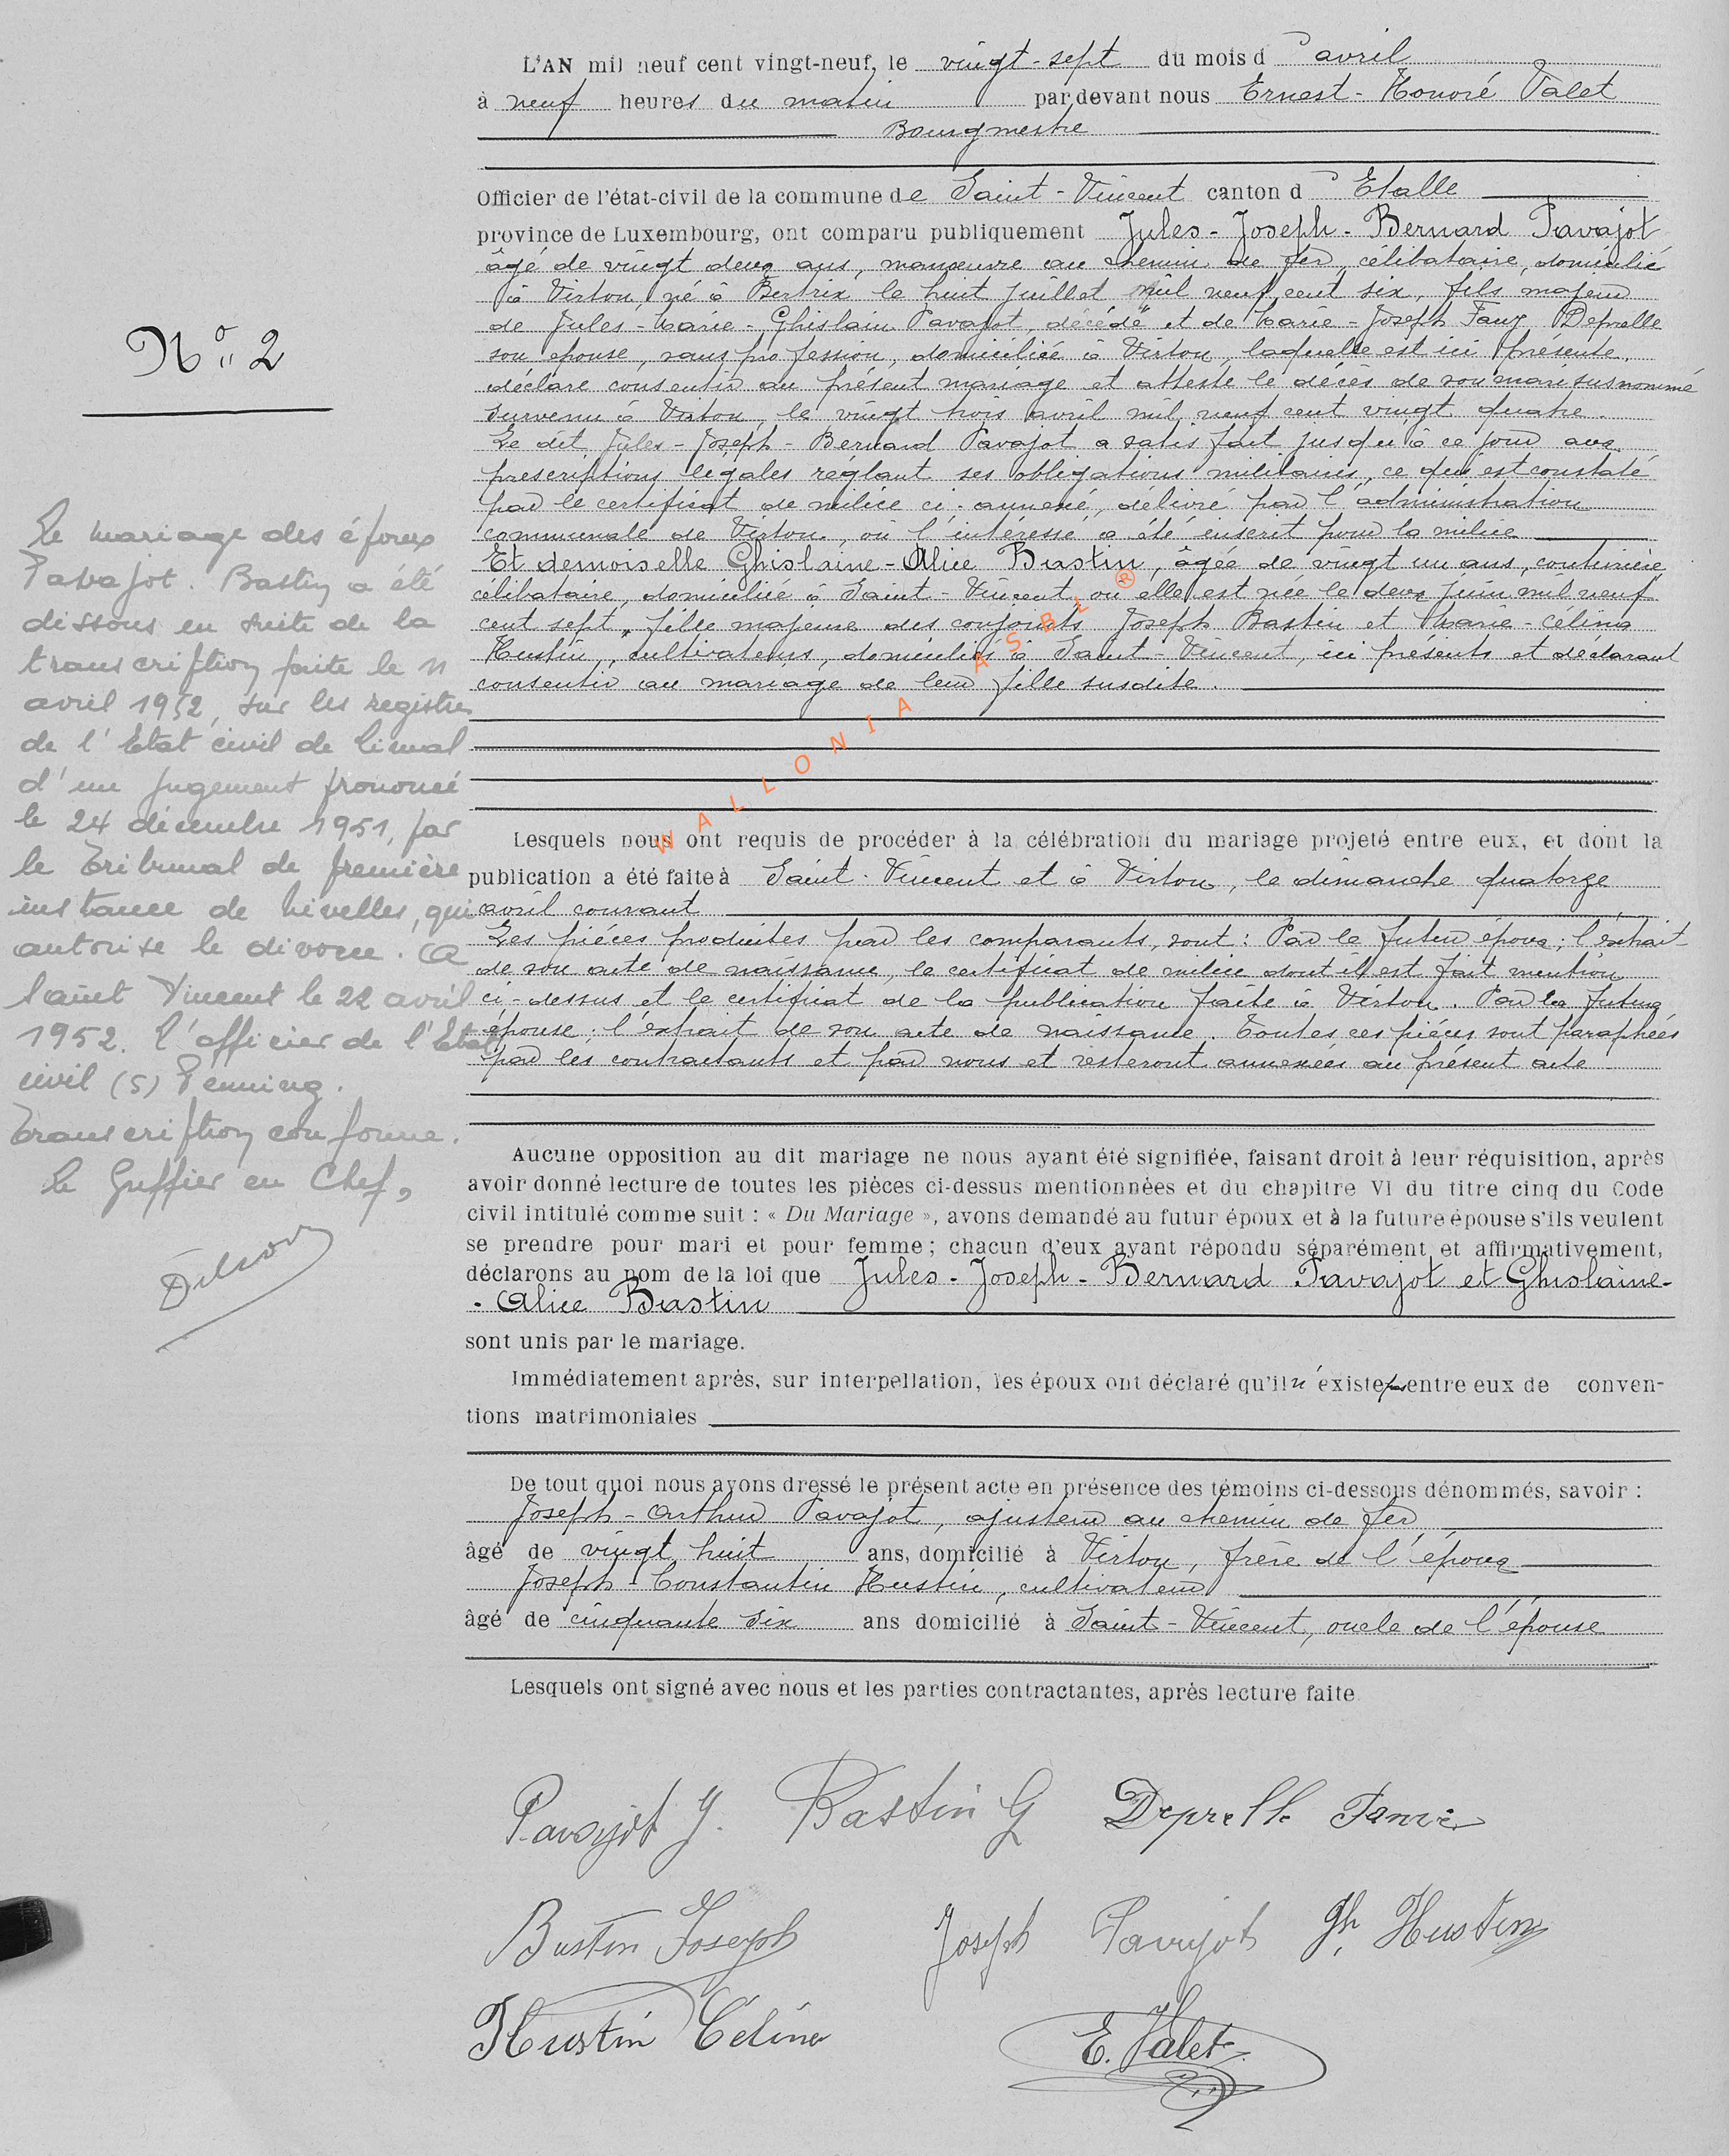 L'AN mil neuf cent vingt-neuf, le vingt-sept du mois d'avril
à neuf heures du matin par devant nous Ernest-Honoré Valet
Bourgmestre
Officier de l'état-civil de la commune de Saint-Vincent canton d'Etalle
province de Luxembourg, ont comparu publiquement Jules-Joseph-Bernard Pavajot
âgé de vingt deux ans, manœuvre au chemin de fer, célibataire, domicilié
à Virton, né à Bertrix le huit juillet mil neuf cent six, fils majeur
de Jules-Marie-Ghislain Pavajot, décédé et de Marie-Joseph Fany Deprelle
son épouse, sans profession, domiciliée à Virton, laquelle est ici présente,
déclare consentir au présent mariage et atteste le décès de son mari susnommé
survenu à Virton, le vingt trois avril mil neuf cent vingt quatre.
Le dit Jules-Joseph-Bernard Pavajot a satisfait jusqu'à ce jour aux
prescriptions légales réglant ses obligations militaires, ce qui est constaté
par le certificat de milice ci-annexé, délivré par l'administration
communale de Virton, où l'intéressé a été inscrit pour la milice
Et demoiselle Ghislaine-Alice Bastin, âgée de vingt un ans, couturière
célibataire, domiciliée à Saint-Vincent où elle est née le deux juin mil neuf
cent sept, fille majeure des conjoints Joseph Bastin et Marie-Célina
Hustin, cultivateurs, domiciliés à Saint-Vincent, ici présents et déclarant
consentir au mariage de leur fille susdite.
Lesquels nous ont requis de procéder à la célébration du mariage projeté entre eux, et dont la
publication a été faite à Saint-Vincent et à Virton, le dimanche quatorze
avril courant
Les pièces produites par les comparants, sont : Par le futur époux ; l'extrait
de son acte de naissance, le certificat de milice dont il est fait mention
ci-dessus et le certificat de la publication faite à Virton. Par la future
épouse ; l'extrait de son acte de naissance. Toutes ces pièces sont paraphées
par les contractants et par nous et resteront annexées au présent acte
Aucune opposition au dit mariage ne nous ayant été signifiée, faisant droit à leur réquisition, après
avoir donné lecture de toutes les pièces ci-dessus mentionnées et du chapitre VI du titre cinq du Code
civil intitulé comme suit : « Du Mariage », avons demandé au futur époux et à la future épouse s'ils veulent
se prendre pour mari et pour femme ; chacun d'eux ayant répondu séparément et affirmativement,
déclarons au nom de la loi que Jules-Joseph-Bernard Pavajot et Ghislaine-
-Alice Bastin
sont unis par le mariage.
Immédiatement après, sur interpellation, les époux ont déclaré qu'il n'existe pas entre eux de conven-
tions matrimoniales
De tout quoi nous avons dressé le présent acte en présence des témoins ci-dessous dénommés, savoir :
Joseph-Arthur Pavajot, ajusteur au chemin de fer
âgé de vingt huit ans, domicilié à Virton, frère de l'époux
Joseph-Constantin Hustin, cultivateur
âgé de cinquante six ans domicilié à Saint-Vincent, oncle de l'épouse
Lesquels ont signé avec nous et les parties contractantes, après lecture faite
Pavajot J. Bastin G Deprelle Fanie
Bastin Joseph Joseph Pavajot Jh, Hustin
Hustin Célina E. Valet
N° 2
Le mariage des époux
Pavajot. Bastin a été
dissous en suite de la
transcription faite le 11
avril 1952, sur les registres
de l'Etat civil de Limal
d'un jugement prononcé
le 24 décembre 1951, par
le Tribunal de première
instance de Nivelles, qui
autorise le divorce. A
Saint Vincent le 22 avril
1952. L'officier de l'Etat
civil (s) Penning.
Transcription conforme.
Le Greffier en Chef,
WALLONIA ASBL ®